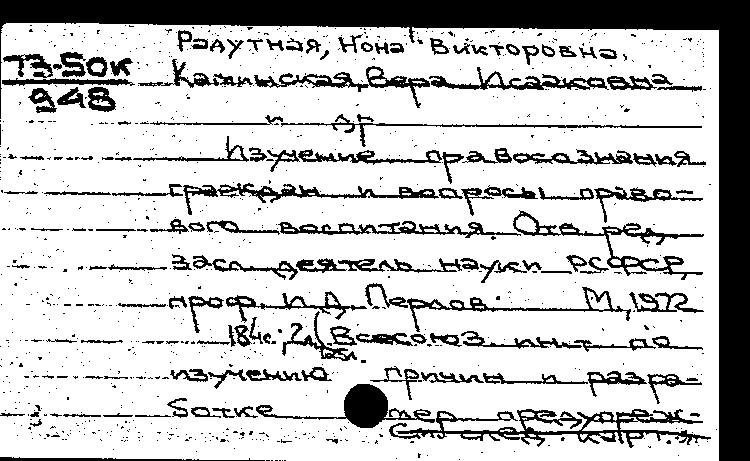 Радутная, Нона Викторовна,
73-50к
948
Каминская, Вера Исааковна
и др.
Изучение правосознания
граждан и вопросы право-
вого воспитания. Отв. ред.
засл. деятель науки РСФСР,
проф. И.Д. Перлов. М., 1972
184с.; 2л. (Всесоюз. ин-т по
125л.
изучению причин и разра-
ботке мер предупреж-
См. след. карт.